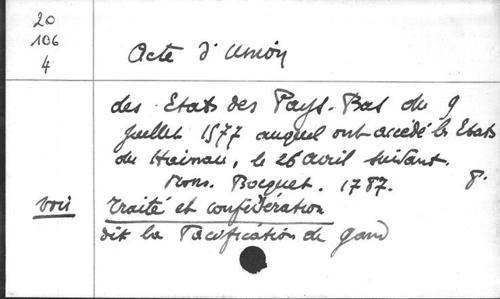 20
106
4
Acte d'Union
des Etats des Pays-Bas du 9
Juillet 1577 auquel ont accédé les Etats
du Hainau, le 26 Avril suivant.
Mons. Bocquet. 1787. 8°.
voir traité et confédération
dit la Pacification de Gand